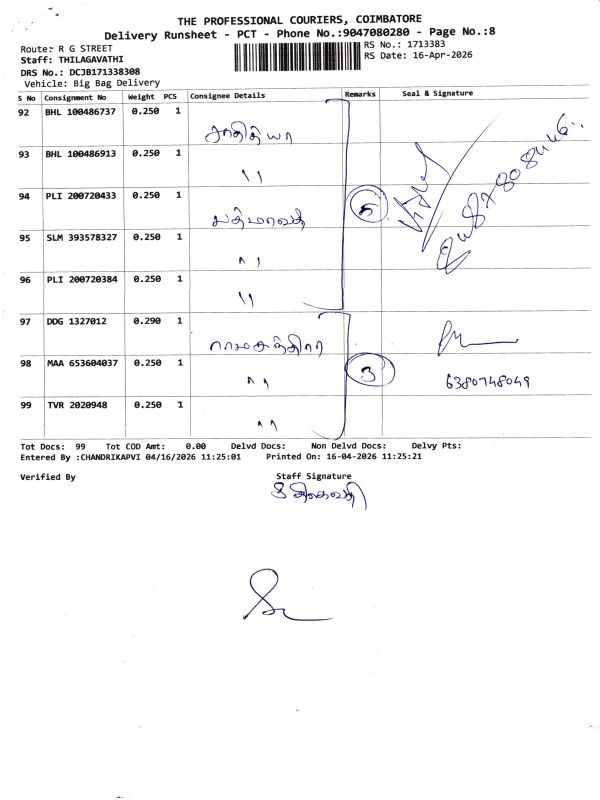 THE PROFESSIONAL COURIERS, COIMBATORE
Delivery Runsheet - PCT - Phone No.:9047080280 - Page No.:8
Route: R G STREET
RS No.: 1713383
Staff: THILAGAVATHI
RS Date: 16-Apr-2026
DRS No.: DCJB171338308
Vehicle: Big Bag Delivery
S No Consignment No Weight PCS Consignee Details Remarks Seal & Signature
92 BHL 100486737 0.250 1
93 BHL 100486913 0.250 1 11
94 PLI 200720433 0.250 1 பத்மாவதி 5
95 SLM 393578327 0.250 1 11
96 PLI 200720384 0.250 1 11
97 DDG 1327012 0.290 1
98 MAA 653604037 0.250 1 11 3 6380748049
99 TVR 2020948 0.250 1 11
Tot Docs: 99 Tot COD Amt: 0.00 Delvd Docs: Non Delvd Docs: Delvy Pts:
Entered By :CHANDRIKAPVI 04/16/2026 11:25:01 Printed On: 16-04-2026 11:25:21
Verified By
Staff Signature